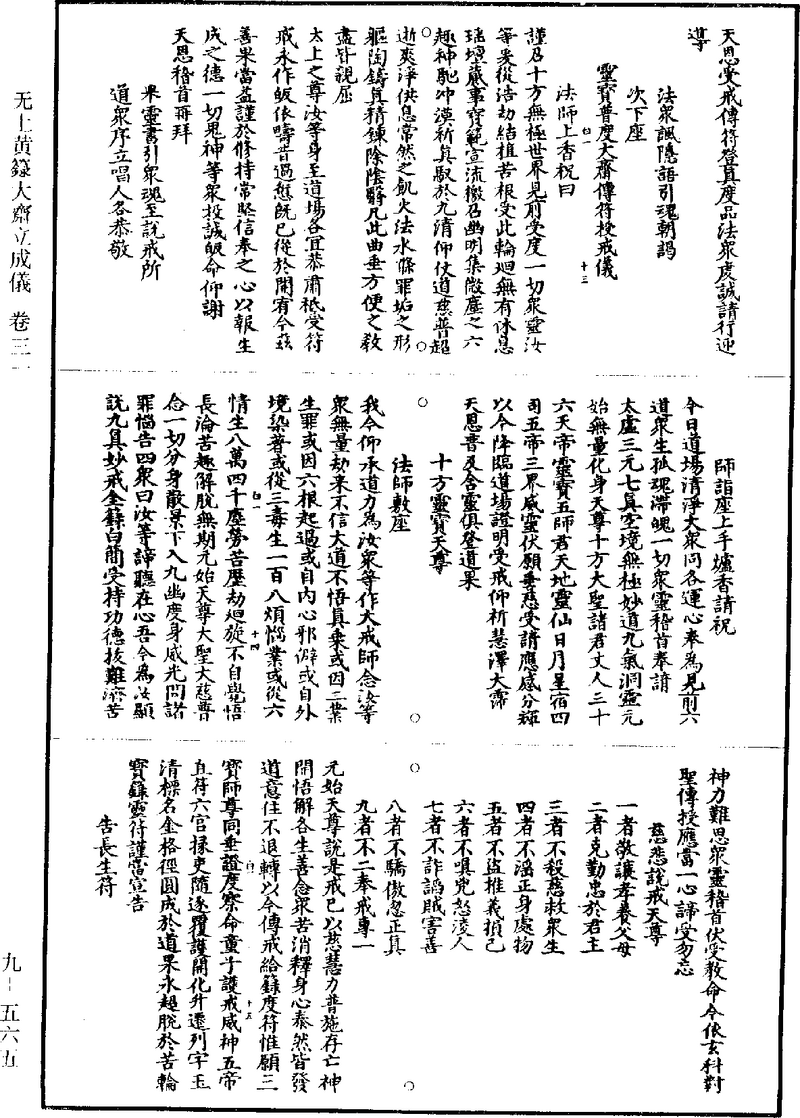 无上黄籙大齋立成儀 卷三一
九-五六五
天恩受戒傳符登真度品法衆虔誠請行迎
導
法衆諷隱語引魂朝謁
次下座
靈寶普度大齋傳符授戒儀
法師上香祝曰
謹召十方無極世界見前受度一切衆靈汝
等爰從浩劫結植苦根受此輪迴無有休息
瑶壇蕆事寶範宣流攝召幽明集微塵之六
趣神馳沖漠祈真馭於九清仰仗道慈普超
逝爽淨供息常然之飢火法水滌罪垢之形
軀陶鑄真精鍊除陰翳凡此曲垂方便之教
盡皆親屈
太上之尊汝等身至道場各宜恭肅祗受符
戒永作皈依疇昔過愆既已從於開宥今兹
善果當益謹於修持常堅信奉之心以報生
成之德一切鬼神等衆投誠皈命仰謝
天恩稽首再拜
米靈書引衆魂至説戒所
道衆序立唱人各恭敬
師詣座上手爐香請祝
今日道場清淨大衆同各運心奉爲見前六
道衆生孤魂滯魄一切衆靈稽首奉請
太虛三元七真空境無極妙道九氣洞靈元
始無量化身天尊十方大聖諸君丈人三十
六天帝靈寶五師君天地靈仙日月星宿四
司五帝三界威靈伏願垂慈受請應感分輝
以今降臨道場證明受戒仰祈慧澤大霈
天恩普及含靈俱登道果
十方靈寶天尊
法師敷座
我今仰承道力爲汝衆等作大戒師念汝等
衆無量劫來不信大道不悟真乗或因三業
生罪或因六根起過或自内心邪僻或自外
境染著或從三毒生一百八煩惱業或從六
情生八萬四千塵勞苦歷劫迴旋不自覺悟
長淪苦趣解脱無期元始天尊大聖大慈普
念一切分身散景下入九幽度身威光問諸
罪惱告四衆曰汝等諦聽在心吾今爲汝顯
説九真妙戒金籙白簡受持功德拔難濟苦
神力難思衆靈稽首伏受教命今依玄科對
聖傳授應當一心諦受勿忘
慈悲説戒天尊
一者敬讓孝養父母
二者克勤忠於君王
三者不殺慈救衆生
四者不淫正身處物
五者不盗推義損己
六者不嗔兇怒凌人
七者不詐謟賊害善
八者不驕傲忽正真
九者不二奉戒專一
元始天尊説是戒已以慈慧力普施存亡神
開悟解各生善念衆苦消釋身心泰然皆發
道意住不退轉以今傳戒給籙度符惟願三
寶師尊同垂證度察命童子護戒威神五帝
直符六宫掾吏隨逐覆護開化升遷列字玉
清標名金格徑圓成於道果永超脱於苦輪
寶籙靈符謹當宣告
告長生符